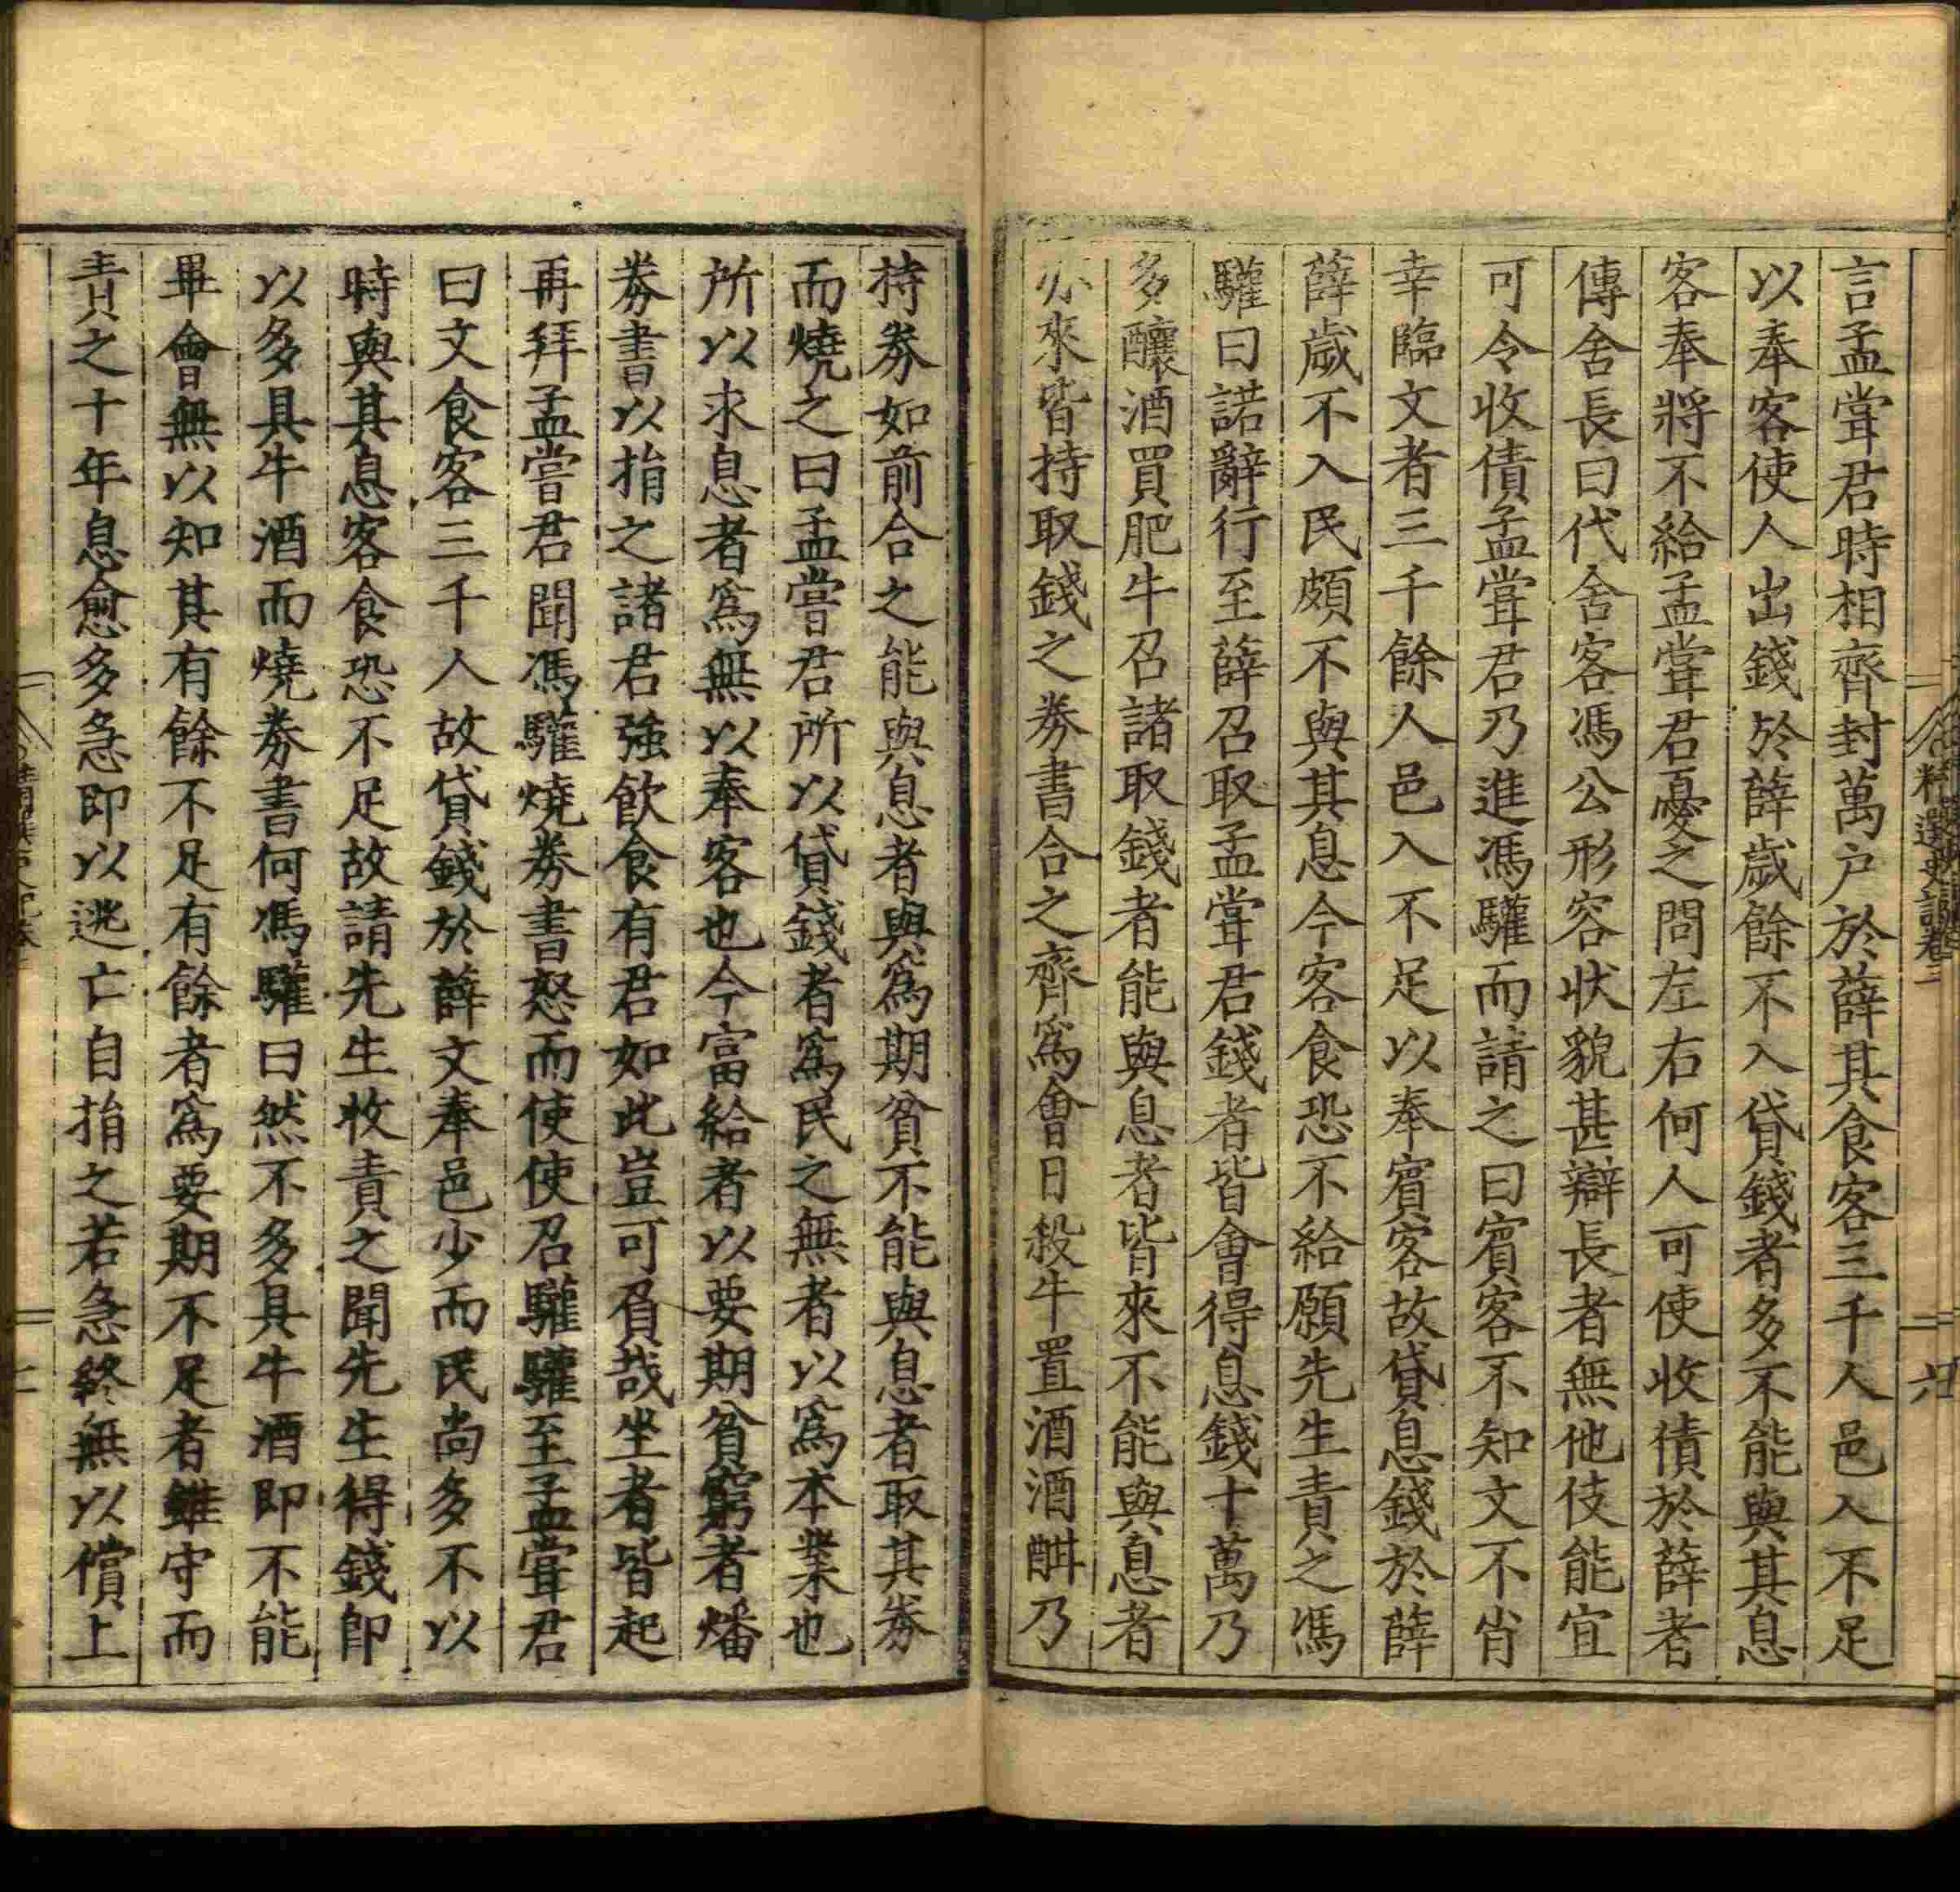 言孟甞君時相齊封萬户於薛其食客三千人邑入不足
以奉客使人出錢於薛歲餘不入貸錢者多不能與其息
客奉將不給孟甞君憂之問左右何人可使收債於薛者
傳舍長曰代舍客馮公形容狀貌甚辯長者無他伎能宜
可令收債孟甞君乃進馮驩而請之曰賓客不知文不肖
幸臨文者三千餘人邑入不足以奉賓客故貸息錢於薛
薛歲不入民頗不與其息今客食恐不給願先生責之馮
驩曰諾辭行至薛召取孟甞君錢者皆會得息錢十萬乃
多釀酒買肥牛召諸取錢者能與息者皆來不能與息者
亦來皆持取錢之券書合之齊爲會日殺牛置酒酒酣乃
持券如前合之能與息者與爲期貧不能與息者取其券
而燒之曰孟嘗君所以貸錢者爲民之無者以爲本業也
所以求息者爲無以奉客也今富給者以要期貧窮者燔
券書以捐之諸君強飲食有君如此豈可負哉坐者皆起
再拜孟嘗君聞馮驩燒券書怒而使使召驩驩至孟甞君
曰文食客三千人故貸錢於薛文奉邑少而民尚多不以
時與其息客食恐不足故請先生收責之聞先生得錢即
以多具牛酒而燒券書何馮驩曰然不多具牛酒即不能
畢會無以知其有餘不足有餘者爲要期不足者雖守而
責之十年息愈多急即以逃亡自捐之若急終無以償上
精選史記卷三
六